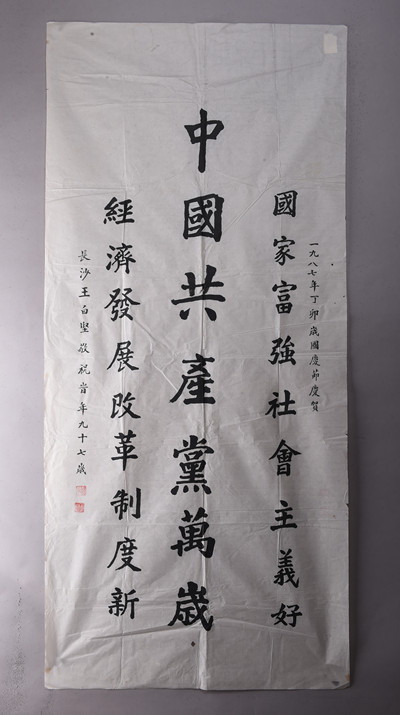 一九八七年丁卯歲國慶節慶賀
國家富強社會主義好
中國共產黨萬歲
經濟發展改革制度新
長沙王自堅敬祝時年九十七歲